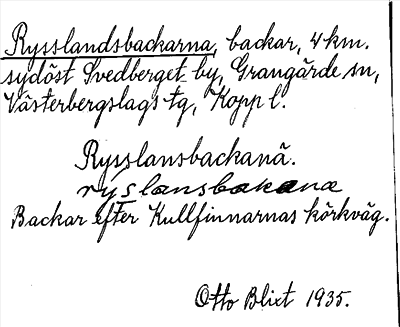 Rysslandsbackarna, backar, 4 km.
sydöst Svedberget by, Grangärde sn,
Västerbergslags tg, Kopp l.
Rysslansbackanä.
ryslansbakanæ
Backar efter Kullfinnarnas körkväg.
Otto Blixt 1935.